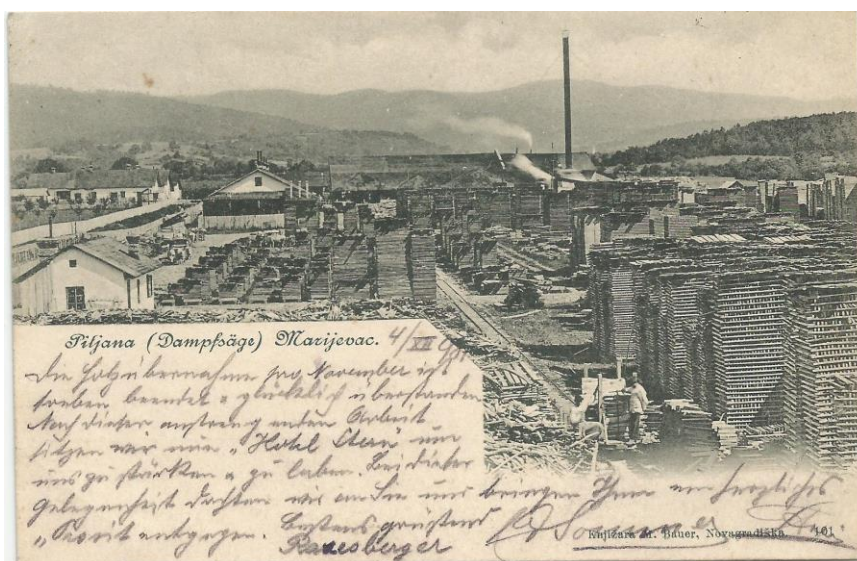 Piljana (Dampfsäge) Marijevac. 4/XII
Die Holzübernahme pro November ist
soeben beendet u glücklich überstanden
Nach dieser anstrengenden Arbeit
sitzen wir nun "Hotel Stern" um
uns zu stärken u zu laben. Bei dieser
Gelegenheit dachten wir an Sie und bringen Ihnen ein herzliches
"Prosit entgegen. Bestens grüssend
Ranesberger Sommer
Knjižara M. Bauer, Novagradiška. 101